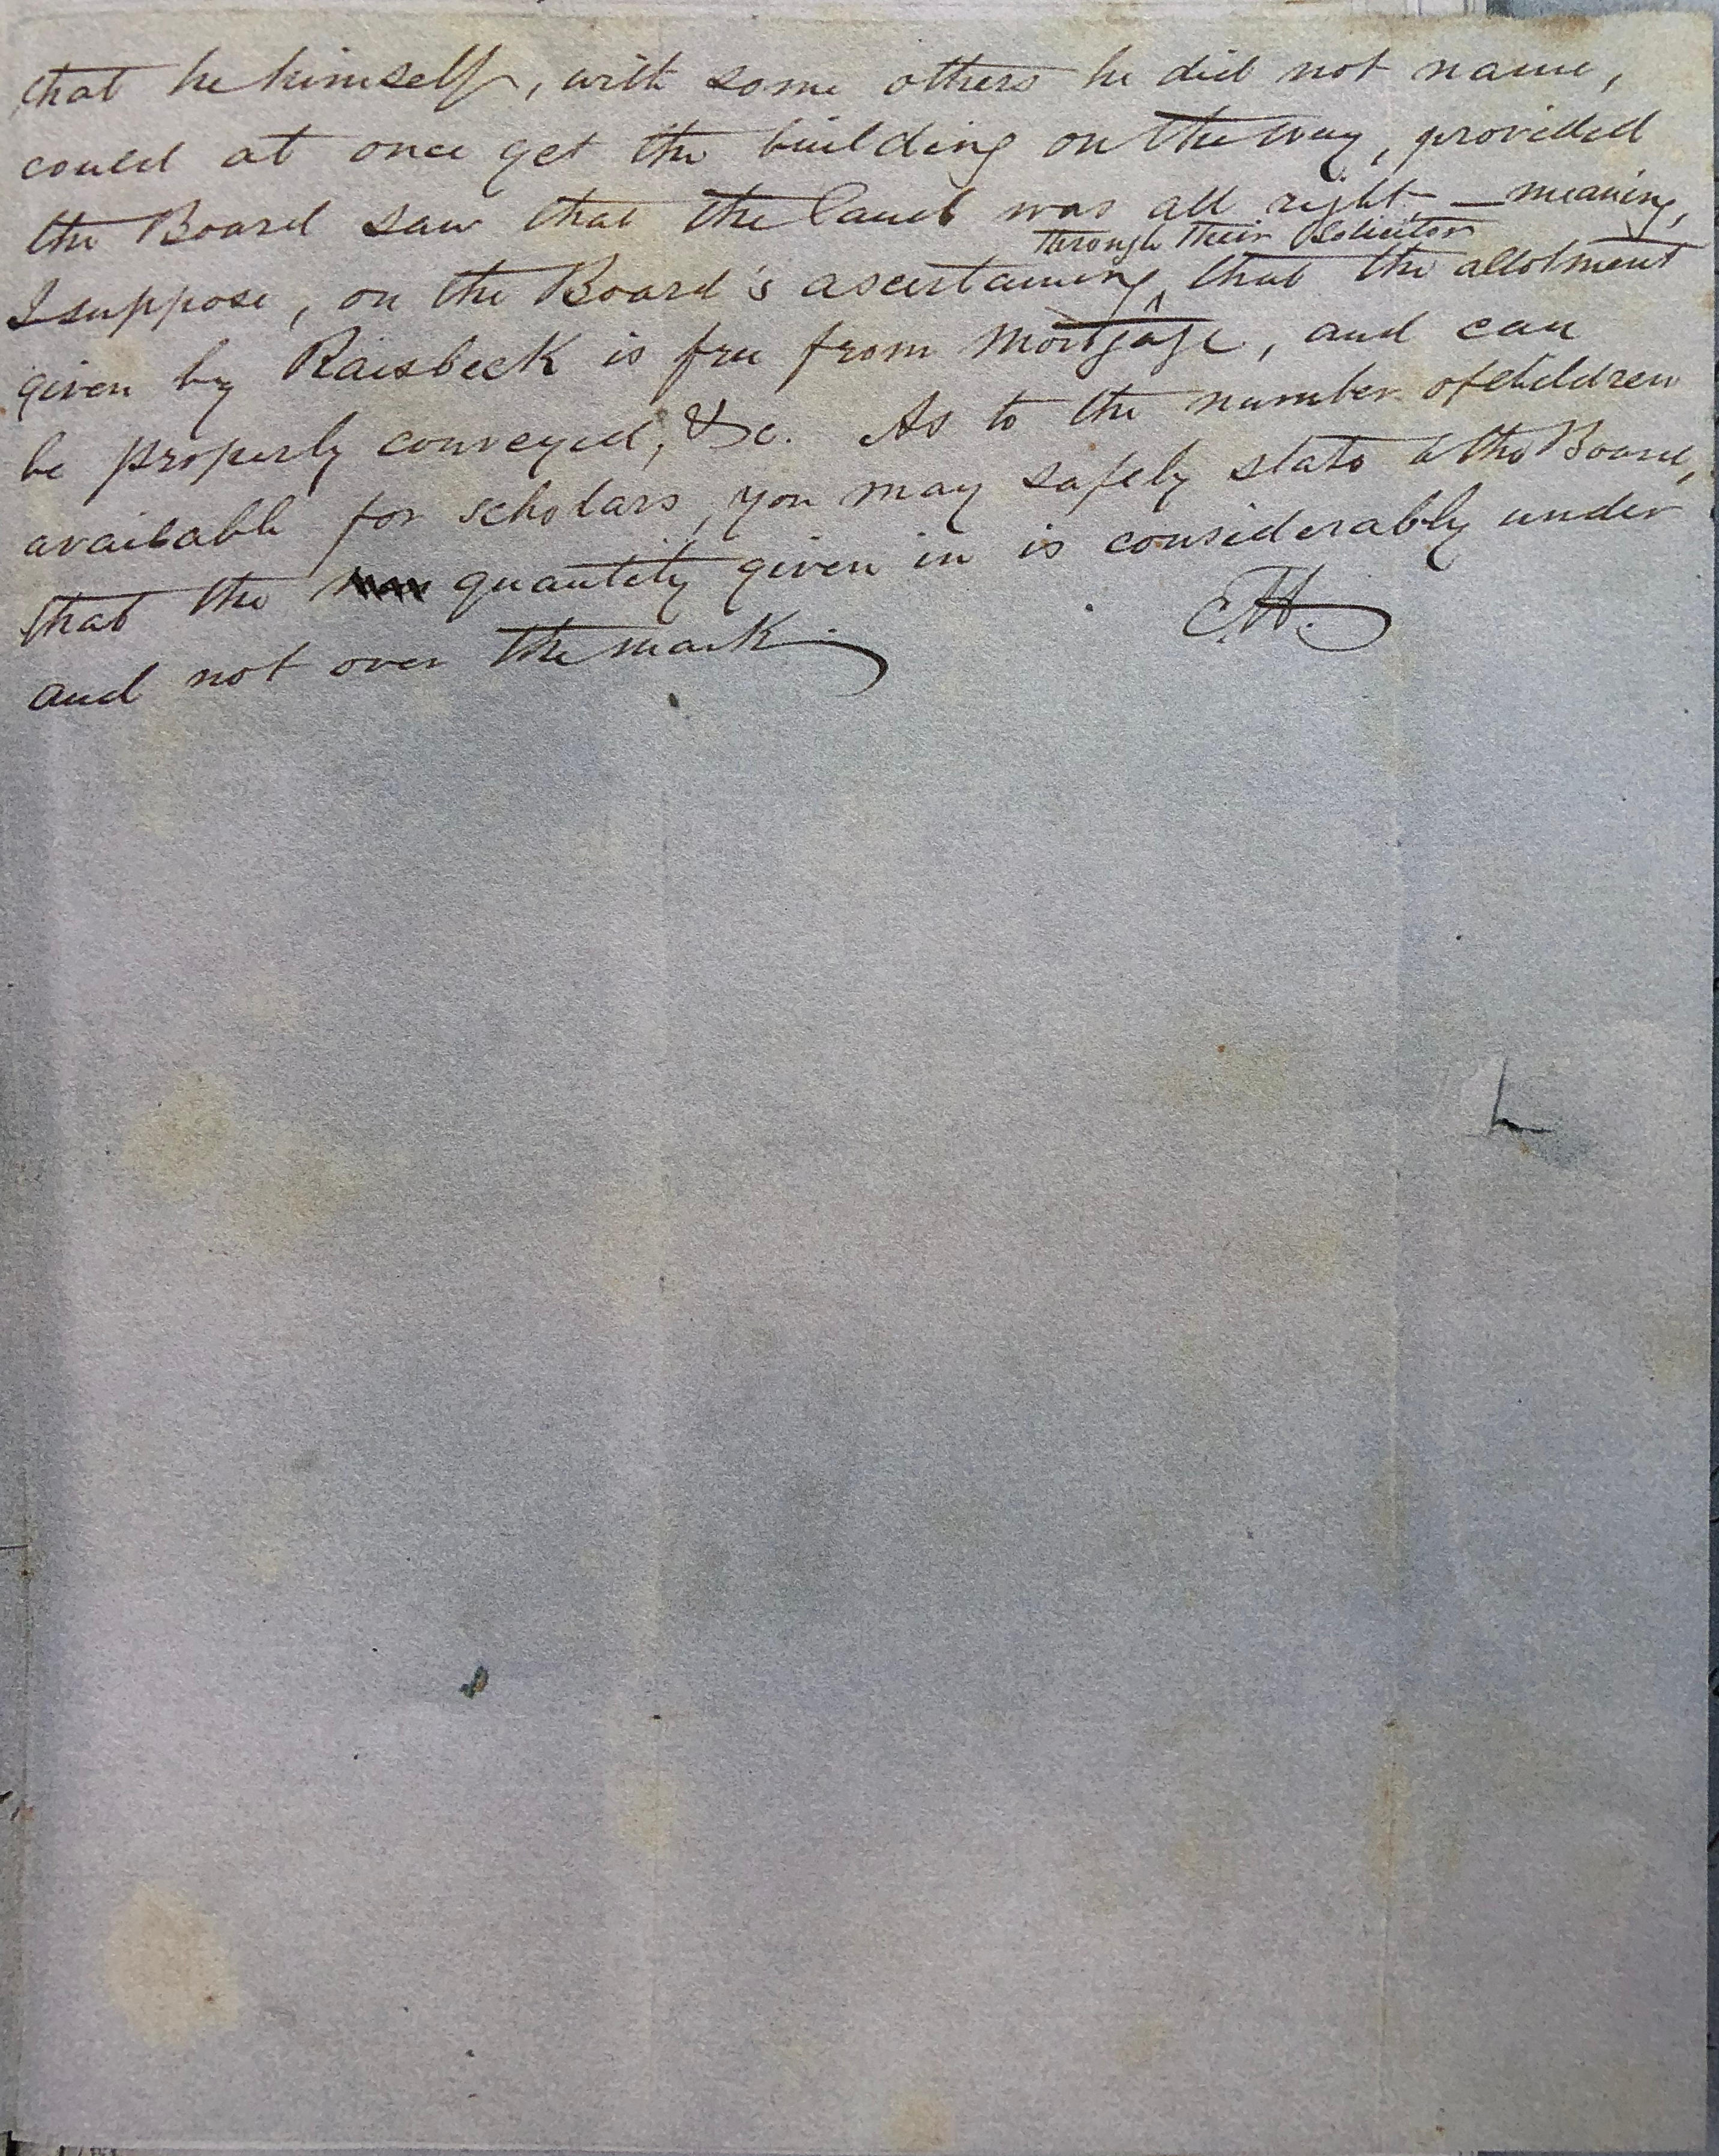 that he himself, with some others he did not name,
could at once get the building on the way, provided
the Board saw that the land was all right — meaning,
through their Solicitor
I suppose, on the Board's ascertaining ^ that the allotment
given by Raisbeck is free from Mortgage, and can
be properly conveyed, &c. As to the number of children
available for scholars, you may safely state to the Board,
that the quantity given in is considerably under
and not over the mark.